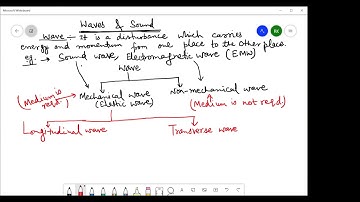 Waves & Sound
Wave :- It is a disturbance which carries
energy and momentum from one place to the other place.
eg. :→ Sound wave, Electromagnetic wave (EMW)
Wave
(Medium is req.d) → Mechanical wave (Elastic wave)
Non-mechanical wave
(Medium is not req.d)
Longitudinal wave
Transverse wave